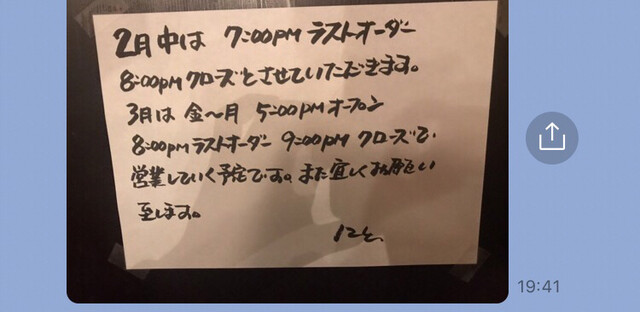 2月中は 7:00PM ラストオーダー
8:00PM クローズとさせていただきます。
3月は 金〜月 5:00PM オープン
8:00PM ラストオーダー 9:00PM クローズで
営業していく予定です。また宜しくお願い
致します。
19:41